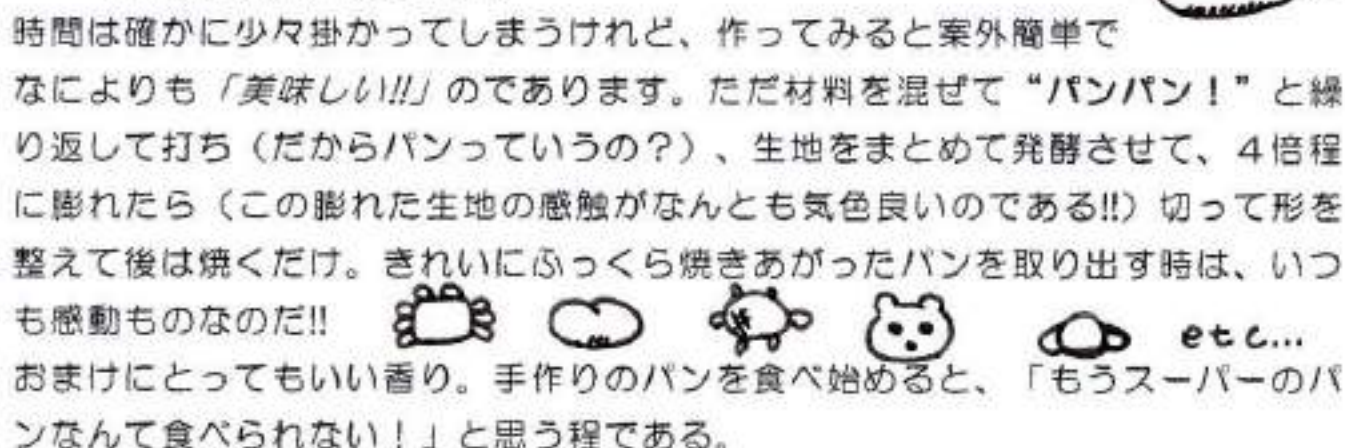 時間は確かに少々掛かってしまうけれど、作ってみると案外簡単で
なによりも「美味しい!!」のであります。ただ材料を混ぜて“パンパン！”と繰
り返して打ち（だからパンっていうの？）、生地をまとめて発酵させて、４倍程
に膨れたら（この膨れた生地の感触がなんとも気色良いのである!!）切って形を
整えて後は焼くだけ。きれいにふっくら焼きあがったパンを取り出す時は、いつ
も感動ものなのだ!!
etc...
おまけにとってもいい香り。手作りのパンを食べ始めると、「もうスーパーのパ
ンなんて食べられない！」と思う程である。